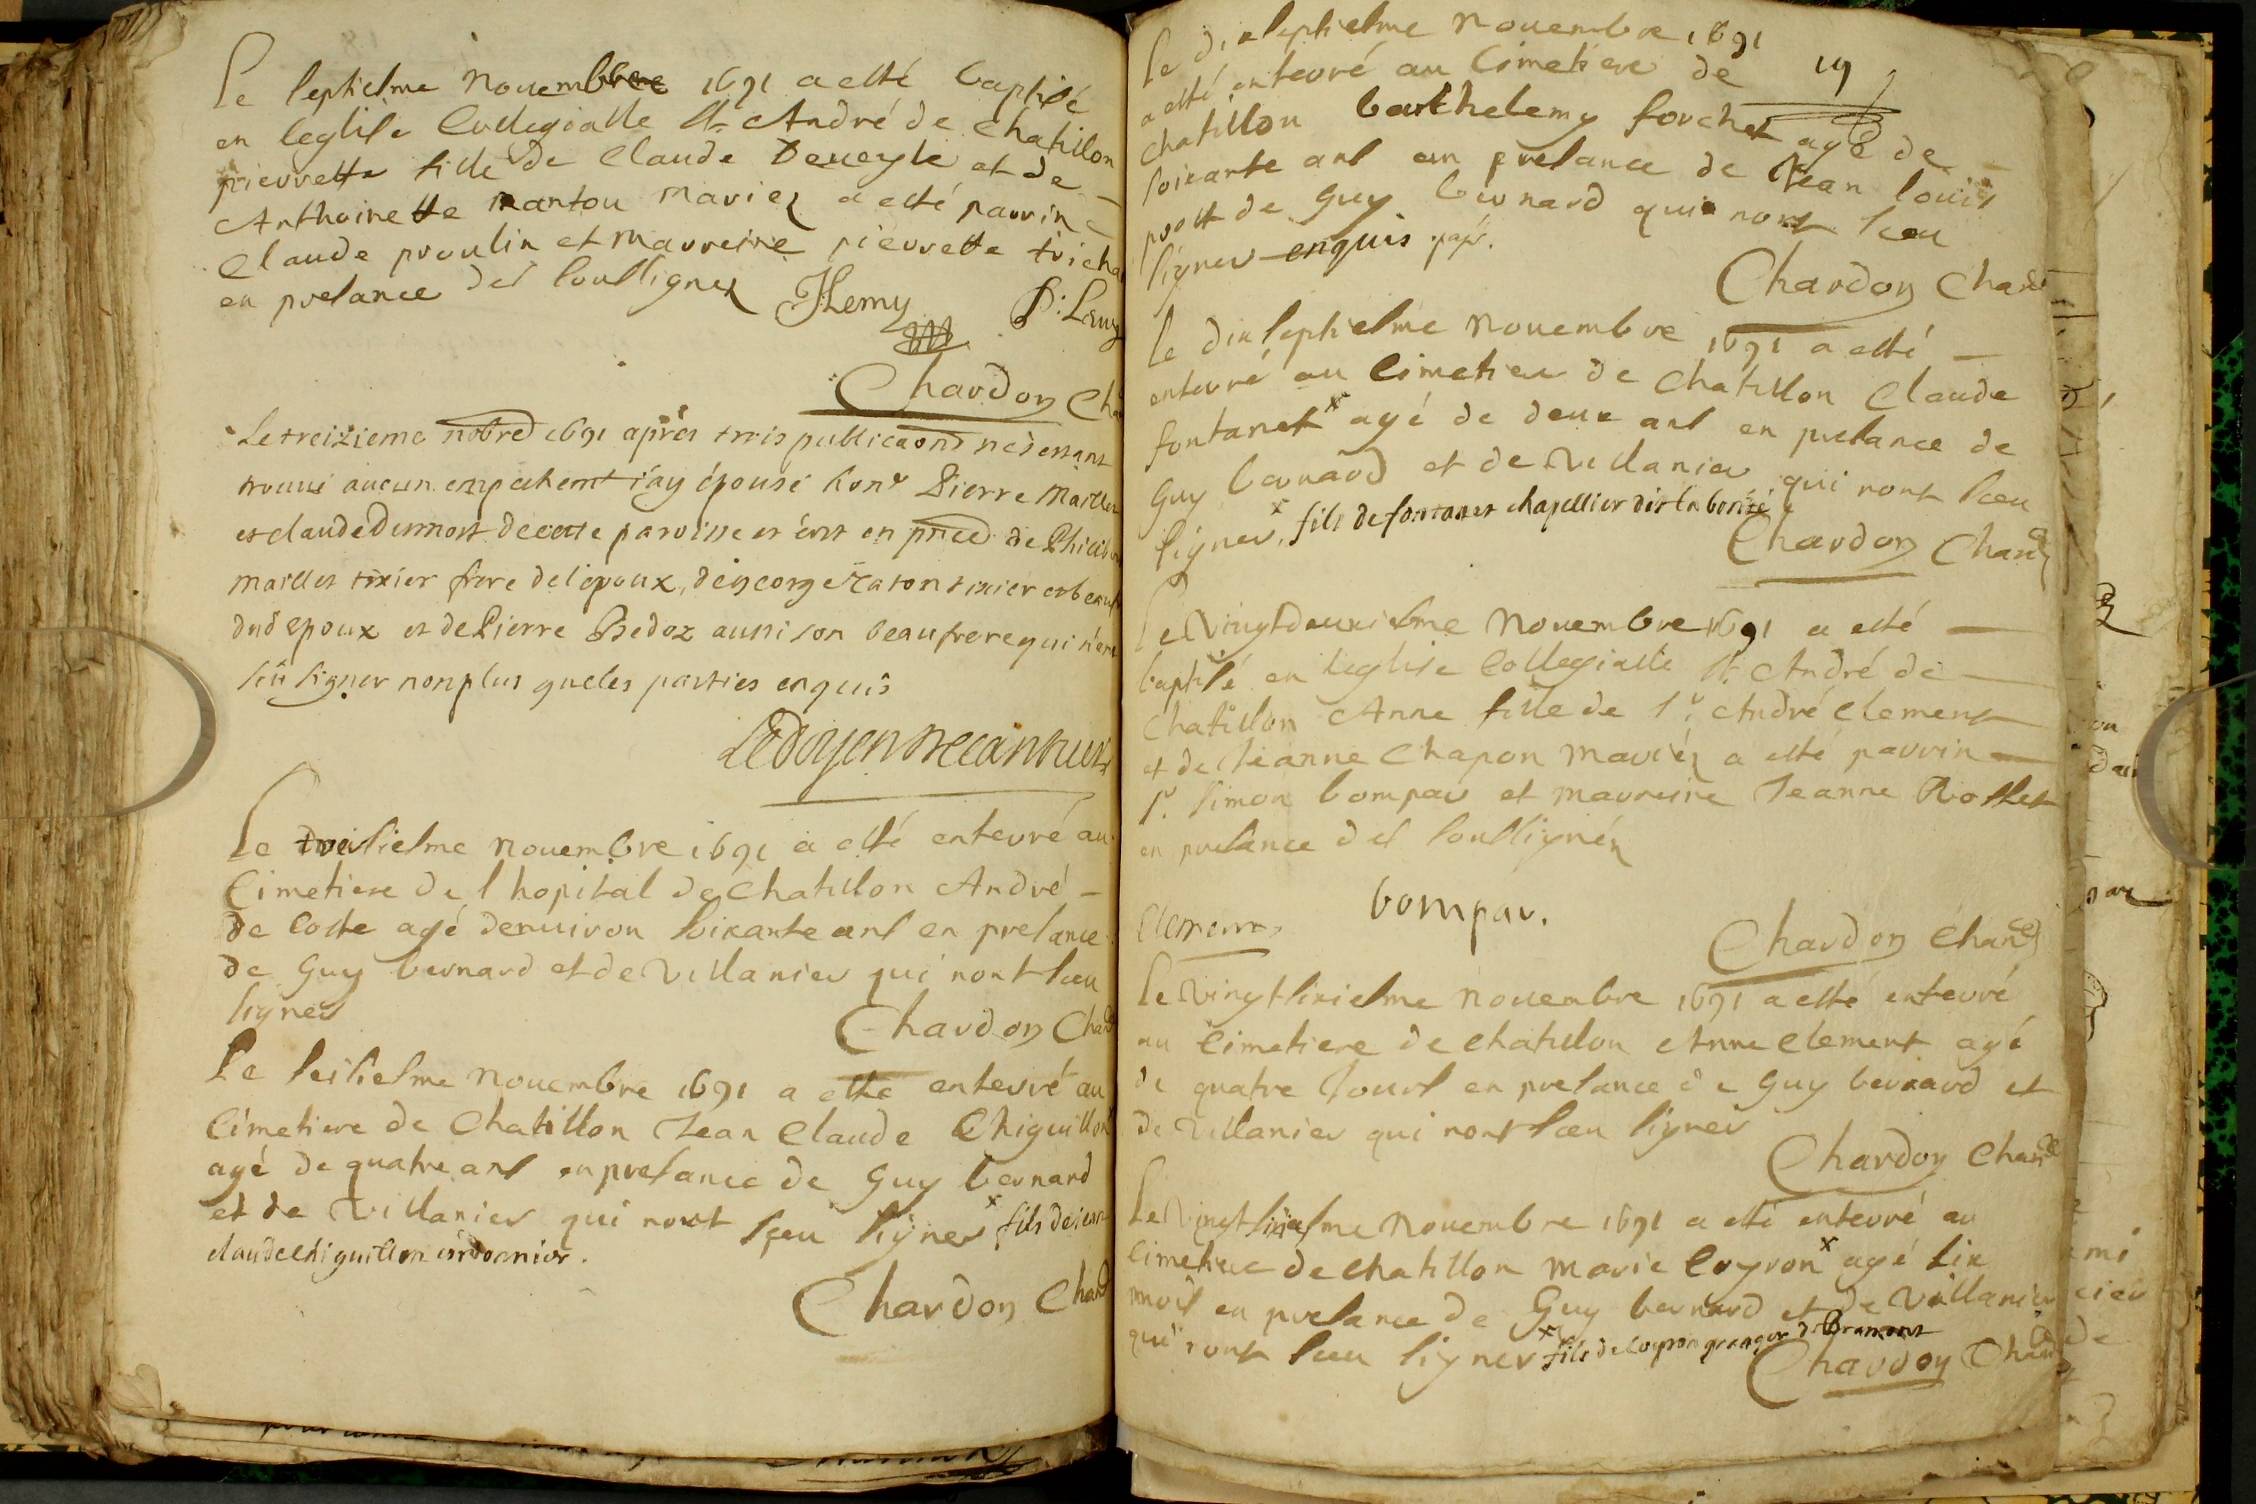 Le septiesme Novembre 1691 a esté baptisé
en leglise Collegialle St. André de chatillon
pierrette fille de Claude Deueyle et de
Anthoinette mantou mariez a esté parrin
Claude proulin et marreine pierrette
en presance des soussignez Hemy
Chardon
Le treizieme nobre 1691 apres trois publicaons ne s'estant
trouué aucun empechemt j'ay épousé hone Pierre Maillet
et claude Dumost de cette paroisse et ont en pnce de
Maillet tixier frere de l'époux, de george raton tixier et beau
dud epoux et de Pierre Bedoz aussi son beaufrere qui n'ont
sçu signer non plus que les parties enquis
Le Doyen
Le treisiesme nouembre 1691 a esté enterré au
Cimetiere de l hopital de Chatillon André
de Coste agé denuiron soixante ans en presance
de Guy bernard et de Villanier qui nont sceu
signer
Chardon
Le seisiesme nouembre 1691 a esté enterré au
Cimetiere de Chatillon Jean Claude Chiguillon
agé de quatre ans en presance de Guy bernard
et de Villanier qui nont sceu signer x fils de jean
claude chiguillon cordonnier.
Chardon
19
Le dixseptiesme Novembre 1691
a esté enterré au Cimetiere de
chatillon barthelemy fouchet agé de
soixante ans en presance de Jean louis
prost de Guy bernard qui nont sceu
signer enquis
Chardon
le dixseptiesme Nouembre 1691 a esté
enterré au Cimetier de Chatillon Claude
fontanet x agé de deux ans en presance de
Guy bernard et de Villanier qui nont sceu
signer. x fils de fontanet chapellier dit la bonté
Chardon
Le Vingtdeuxiesme Nouembre 1691 a esté
baptisé en leglise Collegialle St. André de
Chatillon Anne fille de Sr. André Clement
et de Jeanne Chapon mariéz a esté parrin
Sr. Simon bompar et marreine Jeanne Rosset
en presance des soussignéz
Clement bompar.
Chardon
Le Vingtsixiesme nouembre 1691 a esté enterré
au Cimetiere de chatillon Anne Clement agé
de quatre Jours en presance de Guy bernard et
de Villanier qui nont sceu signer
Chardon
Le Vingtsixiesme Nouembre 1691 a esté enterré au
Cimetiere de chatillon marie Coyron x agé six
mois en presance de Guy bernard et de Villanier
qui nont sceu signer x fils de Coyron granger de Bramont
Chardon